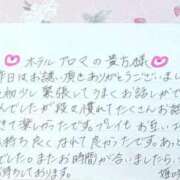 ホテルアロマの貴方様
昨日はお誘い頂きありがとうございまし
最初少し緊張してうまくお話しがで
でしたが段々慣れてたくさんお話
て楽しかったです。プレイもお互い
気持ち良くなれて良かったです。あ
でしたのでまたお時間が合いましたら
お待ちしております。